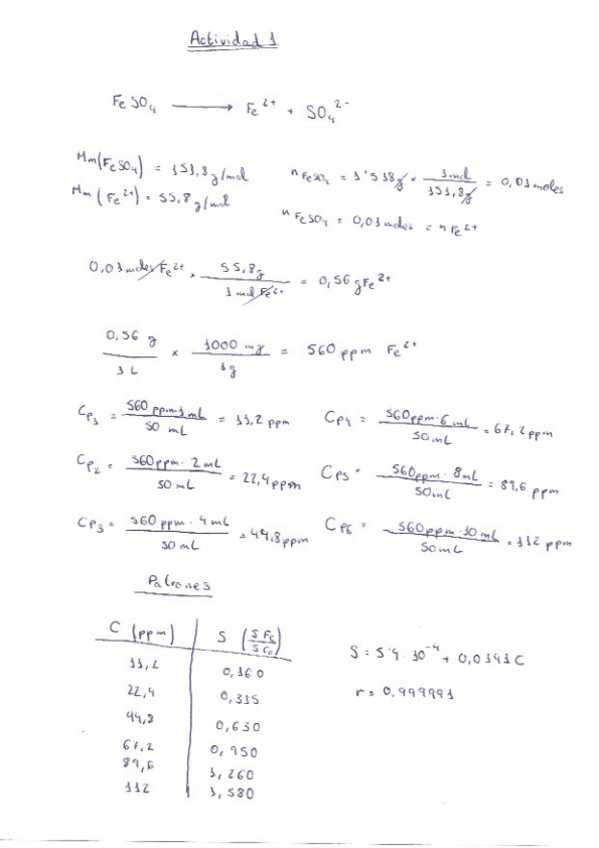 Actividad 1
FeSO₄ ⟶ Fe²⁺ + SO₄²⁻
Mm(FeSO₄) = 151,8 g/mol
Mm (Fe²⁺) = 55,8 g/mol
n FeSO₄ = 1'518g × 1 mol / 151,8g = 0,01 moles
n FeSO₄ = 0,01 moles = n Fe²⁺
0,01 moles Fe²⁺ × 55,8g / 1 mol Fe²⁺ = 0,56 g Fe²⁺
0,56 g / 1 L × 1000 mg / 1g = 560 ppm Fe²⁺
Cp₁ = 560 ppm·1 mL / 50 mL = 11,2 ppm
Cp₄ = 560ppm·6 mL / 50 mL = 67,2 ppm
Cp₂ = 560ppm· 2 mL / 50 mL = 22,4 ppm
Cp₅ = 560ppm· 8 mL / 50 mL = 89,6 ppm
Cp₃ = 560 ppm · 4 mL / 50 mL = 44,8 ppm
Cp₆ = 560 ppm·10 mL / 50 mL = 112 ppm
Patrones
C (ppm) S (S Fe / S Co)
11,2 0,160
22,4 0,315
44,8 0,630
67,2 0,950
89,6 1,260
112 1,580
S = 5'9·10⁻⁴ + 0,0141 C
r = 0,999991